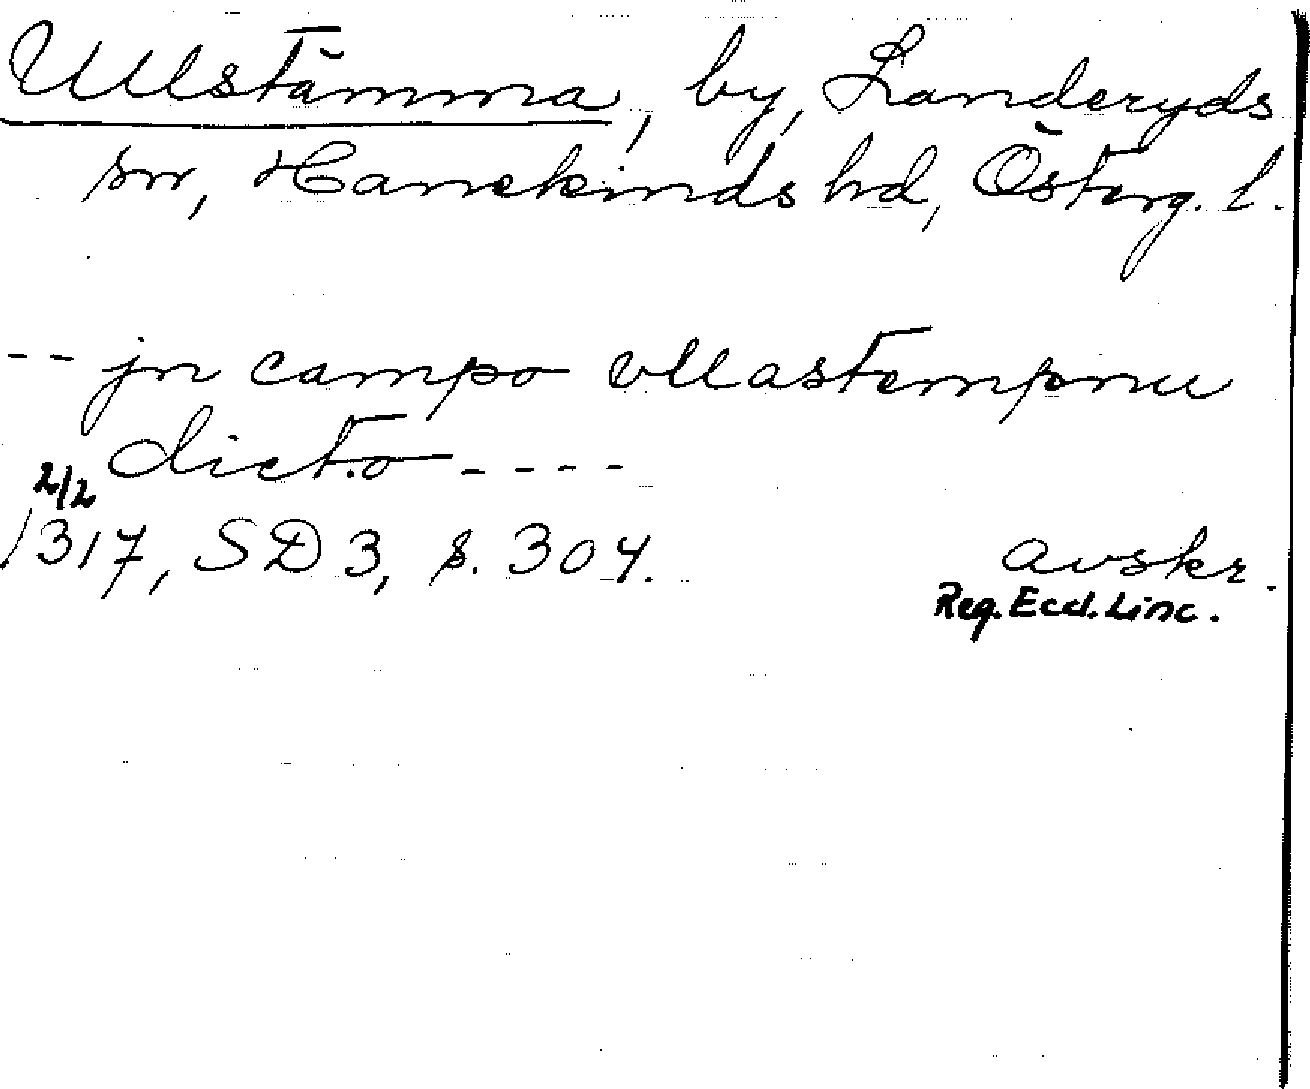 Ullstämma, by, Landeryds
sn, Hanekinds hd, Österg. l.
-- jn campo vllastempnu
dicto ----
2/2
1317, SD 3, s. 304. avskr.
Reg. Eccl. Linc.